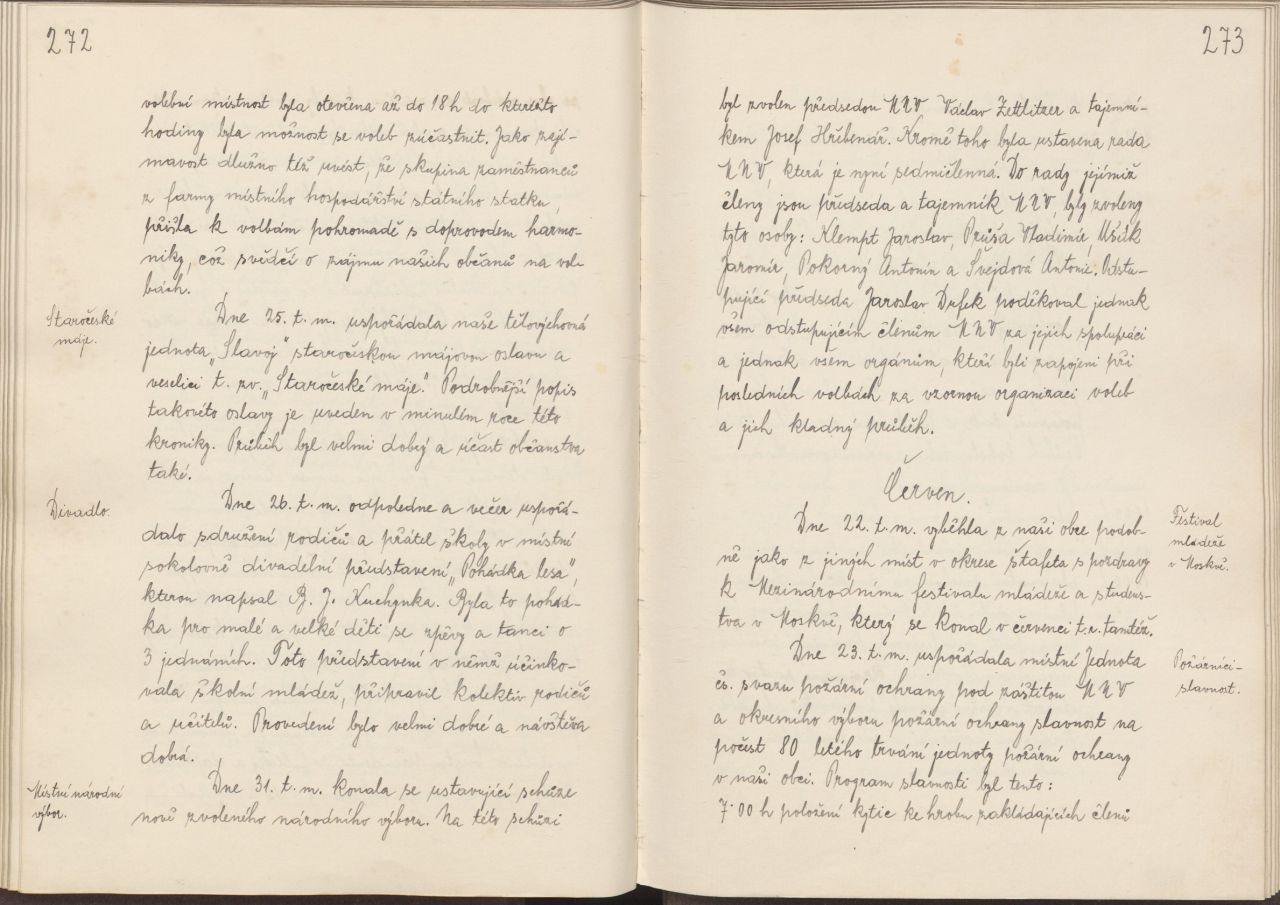 272
volební místnost byla otevřena až do 18h do kteréžto
hodiny byla možnost se voleb zúčastnit. Jako zají-
mavost dlužno též uvést, že skupina zaměstnanců
z farmy místního hospodářství státního statku,
přišla k volbám pohromadě s doprovodem harmo-
niky, což svědčí o zájmu našich občanů na vol-
bách.
Staročeské
máje.
Dne 25. t. m. uspořádala naše tělovýchovná
jednota „Slavoj" staročeskou májovou oslavu a
veselici t. zv. „Staročeské máje." Podrobnější popis
takovéto oslavy je uveden v minulém roce této
kroniky. Průběh byl velmi dobrý a účast občanstva
také.
Divadlo.
Dne 26. t. m. odpoledne a večer uspořá-
dalo sdružení rodičů a přátel školy v místní
sokolovně divadelní představení „Pohádka lesa",
kterou napsal B. J. Kuchynka. Byla to pohád-
ka pro malé a velké děti se zpěvy a tanci o
3 jednáních. Toto představení v němž účinko-
vala školní mládež, připravil kolektiv rodičů
a učitelů. Provedení bylo velmi dobré a návštěva
dobrá.
Místní národní
výbor.
Dne 31. t. m. konala se ustavující schůze
nově zvoleného národního výboru. Na této schůzi
273
byl zvolen předsedou MNV Václav Zettlitzer a tajemní-
kem Josef Hřibenář. Kromě toho byla ustavena rada
MNV, která je nyní sedmičlenná. Do rady jejímiž
členy jsou předseda a tajemník MNV, byly zvoleny
tyto osoby: Klempt Jaroslav, Průša Vladimír, Ušák
Jaromír, Pokorný Antonín a Švejdová Antonie. Odstu-
pující předseda Jaroslav Dufek poděkoval jednak
všem odstupujícím členům MNV za jejich spolupráci
a jednak všem orgánům, kteří byli zapojeni při
posledních volbách za vzornou organizaci voleb
a jich kladný průběh.
Červen.
Festival
mládeže
v Moskvě.
Dne 22. t. m. vyběhla z naší obce podob-
ně jako z jiných míst v okrese štafeta s pozdravy
k Mezinárodnímu festivalu mládeže a studens-
tva v Moskvě, který se konal v červenci t. r. tamtéž.
Požárnicí-
slavnost.
Dne 23. t. m. uspořádala místní Jednota
čs. svazu požární ochrany pod záštitou MNV
a okresního výboru požární ochrany slavnost na
počest 80 letého trvání jednoty požární ochrany
v naší obci. Program slavnosti byl tento:
7·00 h položení kytic ke hrobu zakládajících členů